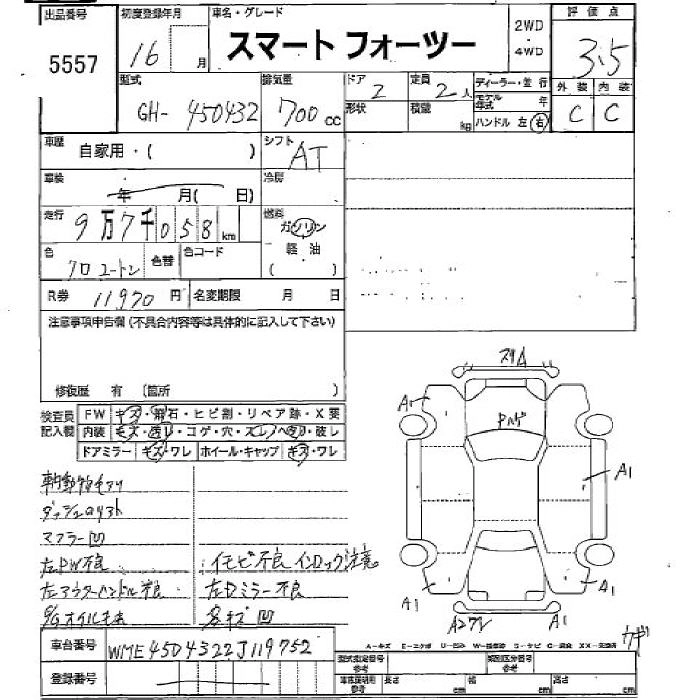 出品番号 初度登録年月 車名・グレード 評価点
5557 16 月 スマート フォーツー 2WD ・ 4WD 3.5
型式 排気量 ドア 定員 ディーラー・並行 外装 内装
GH- 450432 700 cc 2 2 人 モデル年式 年 C C
形状 積載 kg ハンドル 左 右
車歴 自家用・( ) シフト AT
車検 年 月( 日) 冷房
走行 9万7千058 km 燃料 ガソリン
軽油
( )
色 クロ ユートン 色替 色コード
R券 11970 円 名変期限 月 日
注意事項申告欄(不具合内容等は具体的に記入して下さい)
修復歴 有 (箇所 )
検査員記入欄 FW キズ・飛石・ヒビ割・リペア跡・X要
内装 キズ・汚レ・コゲ・穴・スレ・ヘタリ・破レ
ドアミラー キズ・ワレ ホイール・キャップ キズ・ワレ
マフラー凹
左PW不良 イモビ不良 インロック注意
左アウターハンドル不良 左Dミラー不良
スリ A
A1
Pハゲ
A1
A1 A1
A1
車台番号 WME4504322J119752
登録番号
A-キズ E-エクボ U-凹ミ
型式指定番号 参考 類別区分番号 参考
参考 長さ cm 幅 cm 高さ cm